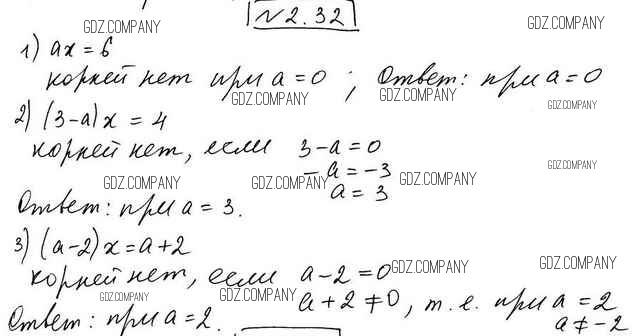 № 2.32
GDZ.COMPANY GDZ.COMPANY
1) ax = 6
корней нет при a = 0 ; Ответ: при a = 0
GDZ.COMPANY GDZ.COMPANY GDZ.COMPANY
2) (3-a)x = 4
корней нет, если 3-a=0
GDZ.COMPANY
-a = -3
GDZ.COMPANY GDZ.COMPANY GDZ.COMPANY
a = 3
Ответ: при a = 3.
3) (a-2)x = a+2
корней нет, если a-2=0
GDZ.COMPANY GDZ.COMPANY
GDZ.COMPANY GDZ.COMPANY
a+2≠0, т.е. при a = 2
a ≠ -2
Ответ: при a = 2.